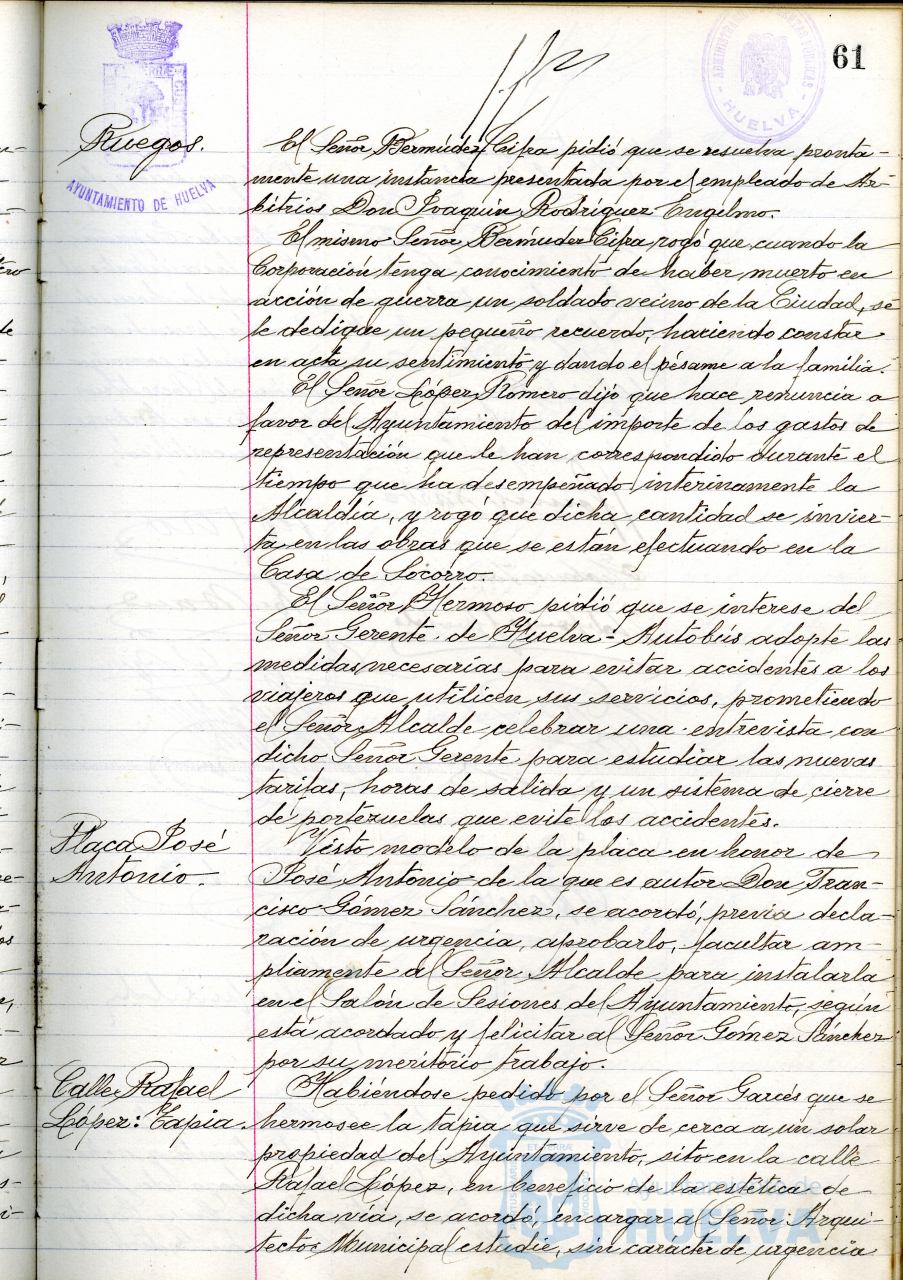 61
ADMINISTRACIÓN DE RENTAS PÚBLICAS
- HUELVA -
AYUNTAMIENTO DE HUELVA
Ruegos.
El Señor Bermúdez Cifra pidió que se resuelva pronta-
mente una instancia presentada por el empleado de Ar-
bitrios Don Joaquín Rodríguez Engelmo.
El mismo Señor Bermúdez Cifra, rogó que cuando la
Corporación tenga conocimiento de haber muerto en
acción de guerra un soldado vecino de la Ciudad, se
le dedique un pequeño recuerdo, haciendo constar
en acta su sentimiento y dando el pésame a la familia.
El Señor López Romero dijo que hace renuncia a
favor del Ayuntamiento del importe de los gastos de
representación que le han correspondido durante el
tiempo que ha desempeñado interinamente la
Alcaldía, y rogó que dicha cantidad se invier-
ta en las obras que se están efectuando en la
Casa de Socorro.
El Señor Hermoso pidió que se interese del
Señor Gerente de Huelva-Autobús adopte las
medidas necesarias para evitar accidentes a los
viajeros que utilicen sus servicios, prometiendo
el Señor Alcalde celebrar una entrevista con
dicho Señor Gerente para estudiar las nuevas
tarifas, horas de salida y un sistema de cierre
de portezuelas que evite los accidentes.
Placa José
Antonio.
Visto modelo de la placa en honor de
José Antonio de la que es autor Don Fran-
cisco Gómez Sánchez, se acordó, previa decla-
ración de urgencia, aprobarlo, facultar am-
pliamente al Señor Alcalde para instalarla
en el Salón de Sesiones del Ayuntamiento, según
está acordado y felicitar al Señor Gómez Sánchez
por su meritorio trabajo.
Calle Rafael
López: Tapia.
Habiéndose pedido por el Señor Garcés que se
hermosee la tapia que sirve de cerca a un solar
propiedad del Ayuntamiento, sito en la calle
Rafael López, en beneficio de la estética de
dicha vía, se acordó encargar al Señor Arqui-
tecto Municipal estudie, sin caracter de urgencia
Ayuntamiento de
HUELVA